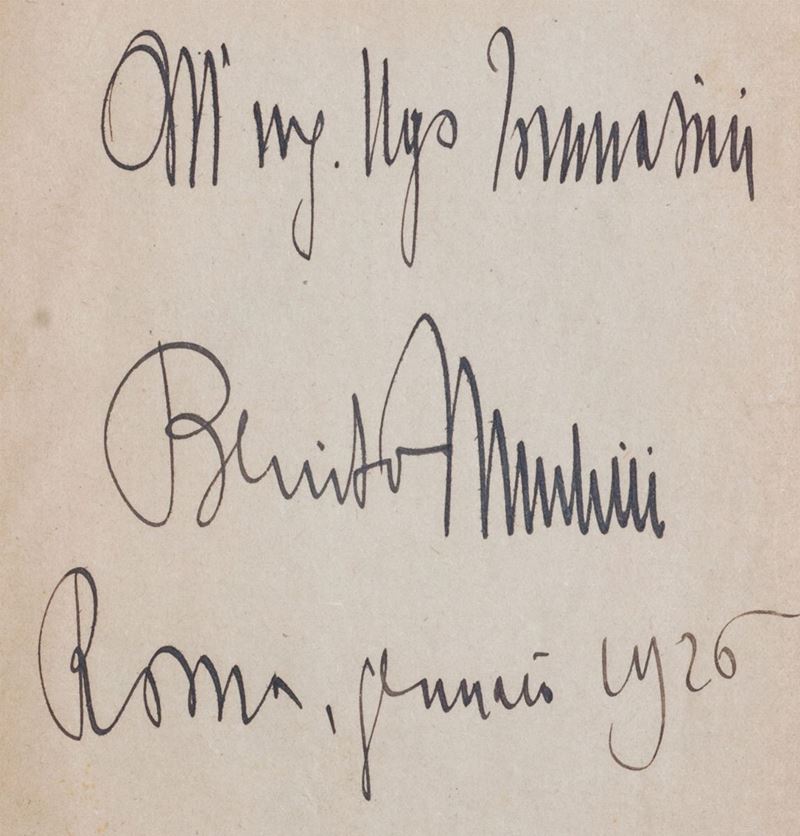 All'ing. Ugo Tomasini
Benito Mussolini
Roma, gennaio 1926